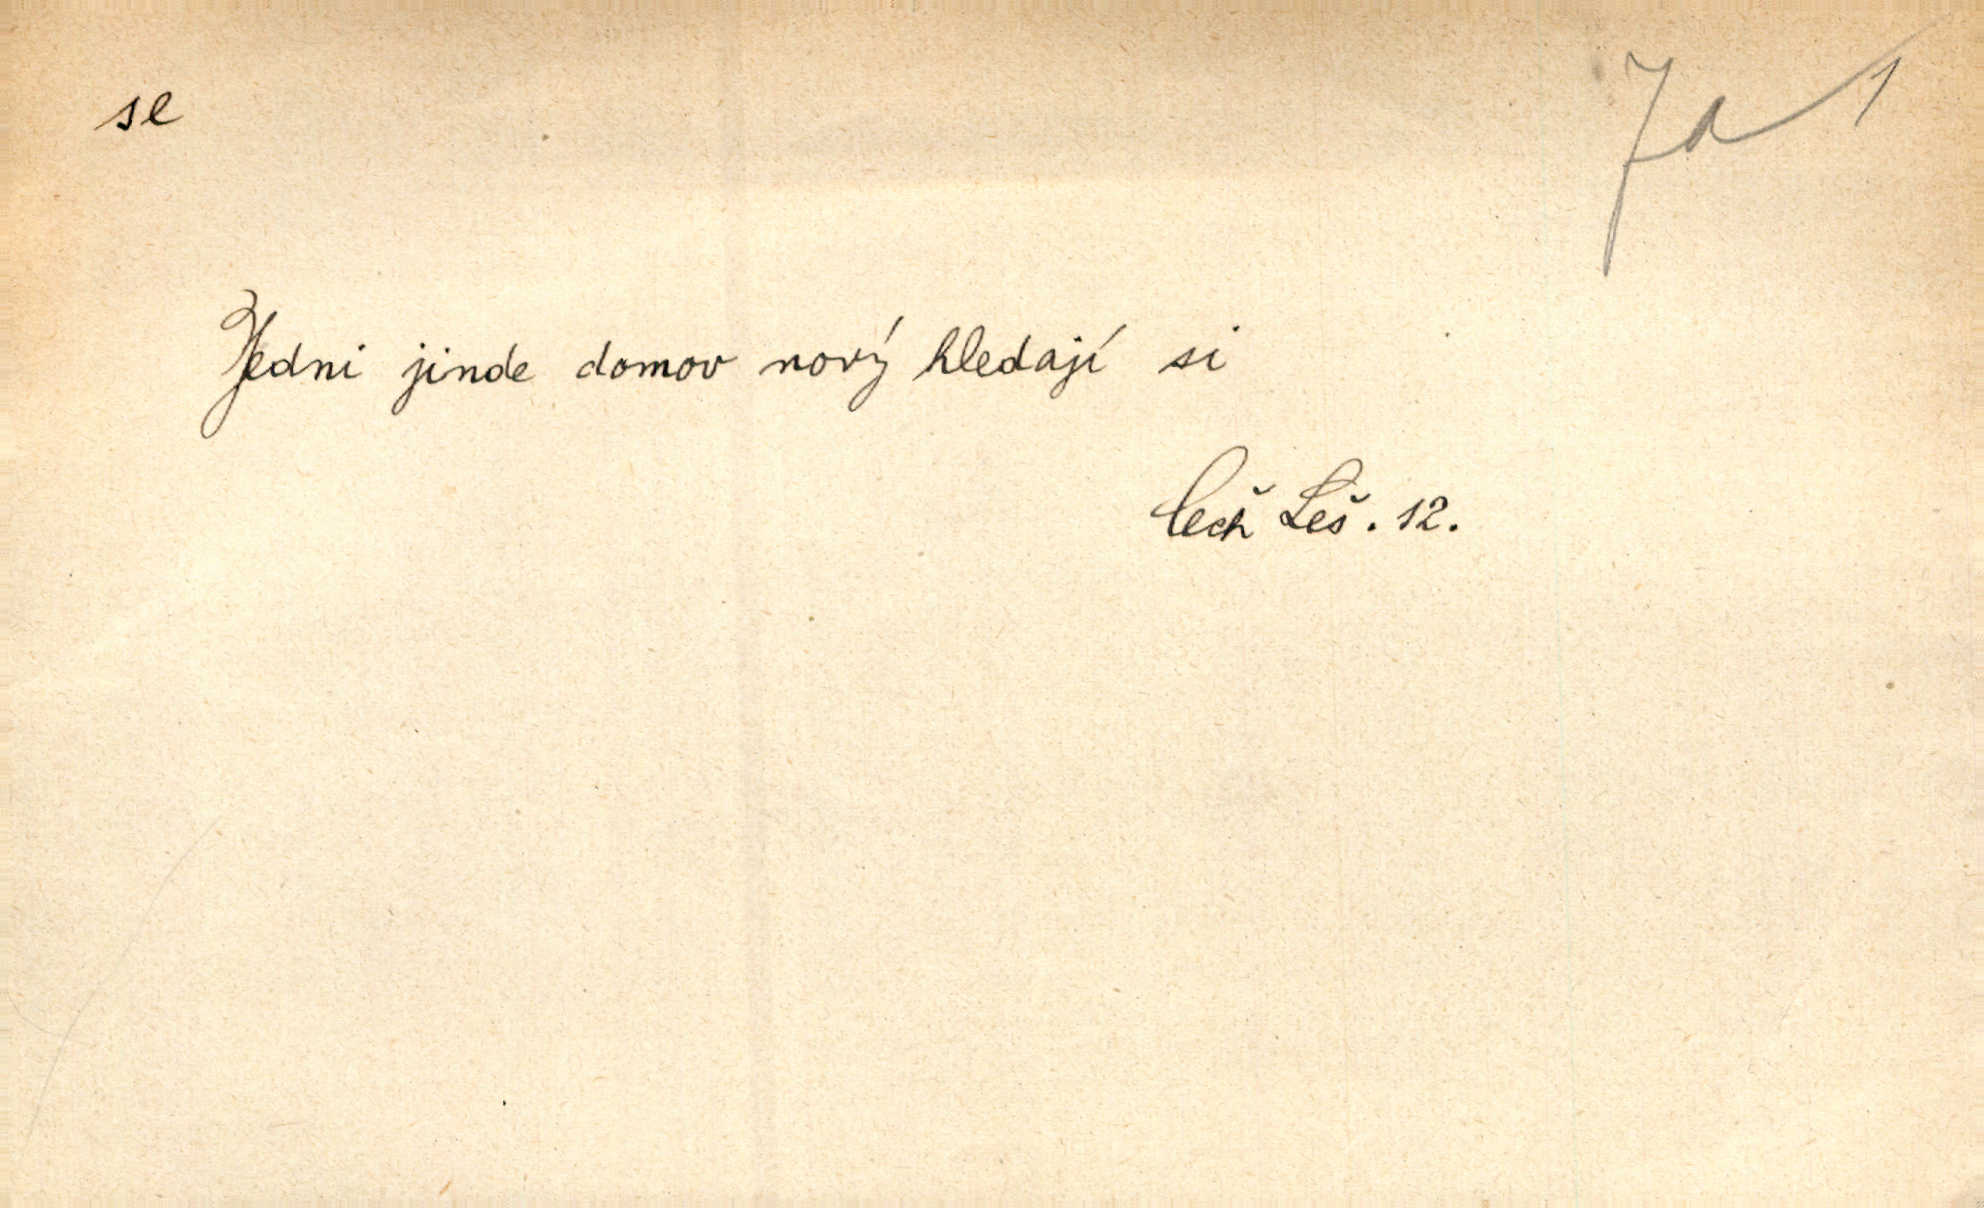 se
7a 1
Jedni jinde domov nový hledají si
Čech Leš. 12.